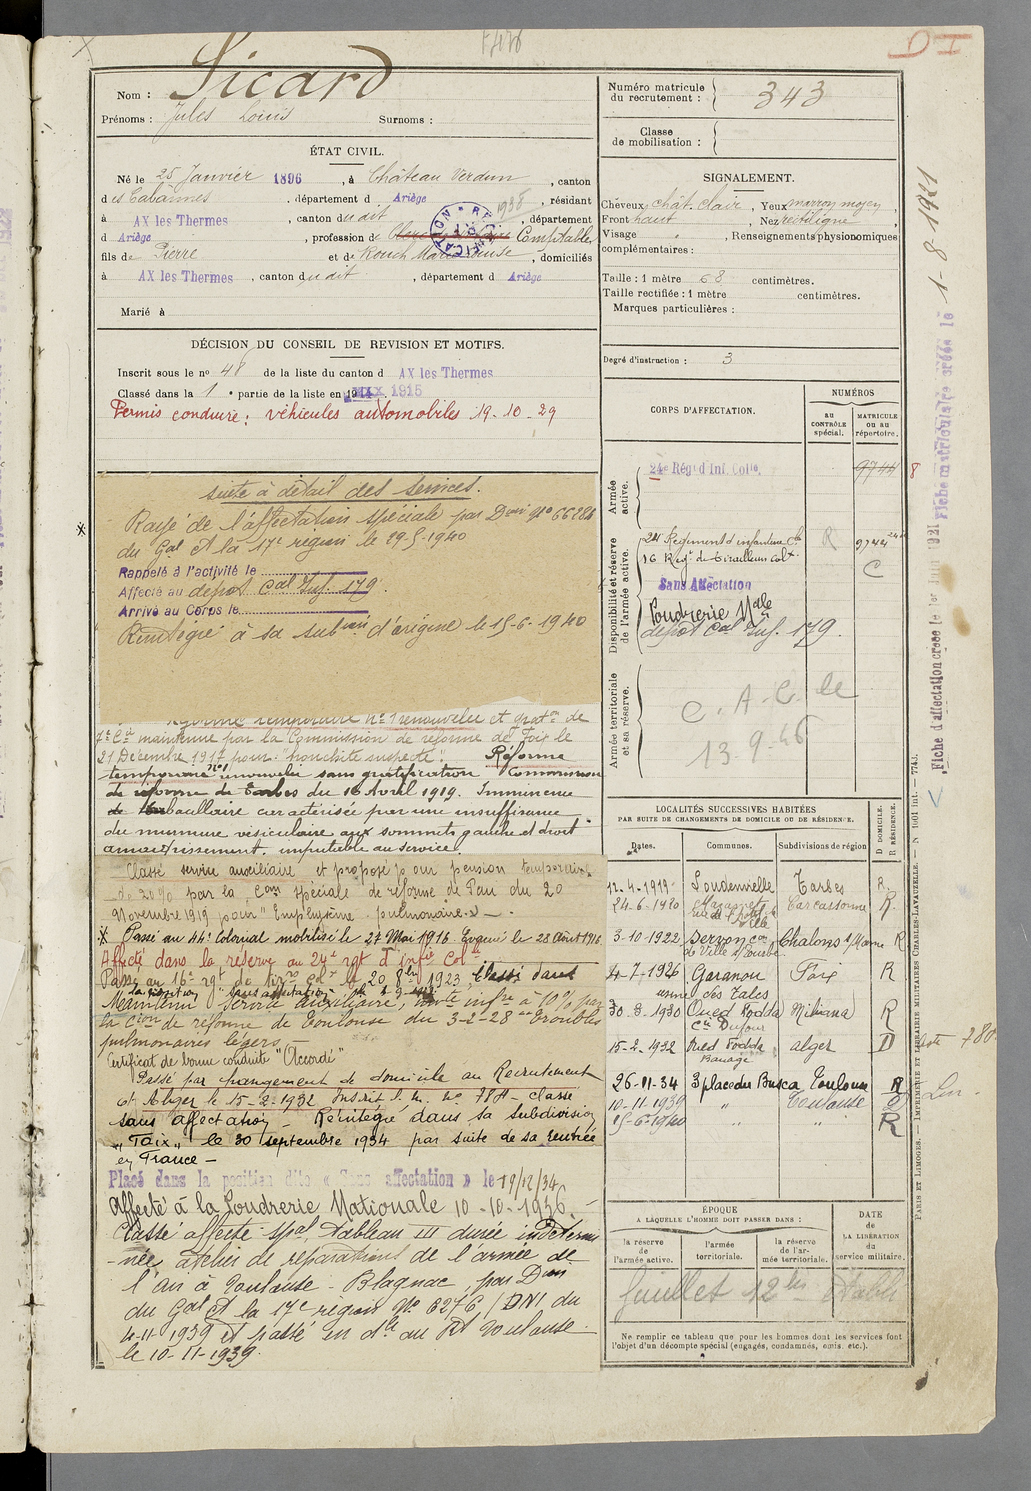 Nom : Sicard
Prénoms : Jules Louis Surnoms :
ÉTAT CIVIL.
Né le 25 Janvier 1896, à Château Verdun, canton
des Cabannes, département d Ariège, résidant
à AX les Thermes, canton dudit 1938, département
d Ariège, profession de Comptable
fils de Pierre et de Rouch Marie Louise, domiciliés
à AX les Thermes, canton dudit, département d Ariège
Marié à
DÉCISION DU CONSEIL DE REVISION ET MOTIFS.
Inscrit sous le nº 48 de la liste du canton d AX les Thermes
Classé dans la 1e partie de la liste en 1915
Permis conduire : véhicules automobiles 19-10-29
suite à détail des services.
Rayé de l'affectation spéciale par Don Nº 66284
du Gal Ct la 17e région le 29-5-1940
Rappelé à l'activité le
Affecté au dépot Cal Inf. 179
Arrivé au Corps le
Réintégré à sa subon d'origine le 15-6-1940
Réforme temporaire nº 1 renouvelée et graton de
7e Cie maintenue par la Commission de réforme de Foix le
21 Décembre 1917 pour "bronchite suspecte". Réforme
temporaire nº1 renouvelée sans gratification Commission
de réforme de Tarbes du 16 Avril 1919. Imminence
de bacillaire caractérisée par une insuffisance
du murmure vésiculaire aux sommets gauche et droit
amaigrissement. imputable au service.
Classé service auxiliaire et proposé pour pension temporaire
de 20% par la Com spéciale de réforme de Pau du 20
Novembre 1919 pour "Emphysème pulmonaire" —
Passé au 44e Colonial mobilisé le 27 Mai 1916. Evacué le 28 Août 1916
Affecté dans la réserve au 24e rgt d'infie Colle
Passé au 16e rgt de tirrs Colx le 20 8bre 1923, Classé dans
la position sans affectation
Maintenu service auxiliaire, invte infre à 10% par
la Cion de réforme de Toulouse du 3-2-28 "troubles
pulmonaires légers
Certificat de bonne conduite "Accordé"
Passé par changement de domicile au Recrutement
ct Alger le 15-2-1932 Inscrit classe
sans affectation - Réintégré dans sa subdivision
"Foix" le 30 septembre 1934 par suite de sa rentrée
en France —
Placé dans la position dite « Sans affectation » le 19/12/34
Affecté à la Poudrerie Nationale 10-10-1936.
Classé affecté spal, tableau III durée indétermi
-née, atelier de réparations de l'armée de
l'air à Toulouse - Blagnac, par Don
du Gal Ct la 17e région Nº 6276/DN1 du
4-11 1939 et passé en dle au Rt Toulouse
le 10-11-1939.
Numéro matricule du recrutement : 343
Classe de mobilisation :
SIGNALEMENT.
Cheveux chât. clair, Yeux marron moyen,
Front haut, Nez rectiligne,
Visage, Renseignements physionomiques
complémentaires :
Taille : 1 mètre 68 centimètres.
Taille rectifiée : 1 mètre centimètres.
Marques particulières :
Degré d'instruction : 3
CORPS D'AFFECTATION.
NUMÉROS
AU CONTRÔLE spécial.
MATRICULE OU AU répertoire.
Armée active.
24e Régt d'Inf. Colle. 9744
Disponibilité et réserve de l'armée active.
24 Régiment d'infanterie Cle R 9744
16 Régt de Tirailleurs Colx C
Sans Affectation
Poudrerie Nale
dépot Cal Inf. 179.
Armée territoriale et sa réserve.
C. A. C. le
13.9.46
LOCALITÉS SUCCESSIVES HABITÉES
PAR SUITE DE CHANGEMENTS DE DOMICILE OU DE RÉSIDENCE.
Dates. Communes. Subdivisions de région D DOMICILE. R RÉSIDENCE.
12-4-1919 Loudenvielle Tarbes R.
24-6-1920 Mazamet Carcassonne R.
3-10-1922 Servon Chalons s/Marne R
4-7-1926 Garanou Foix R
usine des Talcs
30-8-1930 Oued Fodda Miliana R
Cie Dufour
15-2-1932 Oued Fodda Alger D
Barrage
26-11-34 3 place du Busca Toulouse R
10-11-1939 " Toulouse
15-6-1940 " " R
ÉPOQUE
A LAQUELLE L'HOMME DOIT PASSER DANS :
la réserve de l'armée active.
l'armée territoriale.
la réserve de l'armée territoriale.
DATE de LA LIBÉRATION du service militaire.
Ne remplir ce tableau que pour les hommes dont les services font
l'objet d'un décompte spécial (engagés, condamnés, omis, etc.).
Fiche matriculaire créée le 1-8 1921
Fiche d'affectation créée le 1er Juin 1921
PARIS ET LIMOGES. — IMPRIMERIE ET LIBRAIRIE MILITAIRES CHARLES-LAVAUZELLE. — N° 1001 int. — 7743.